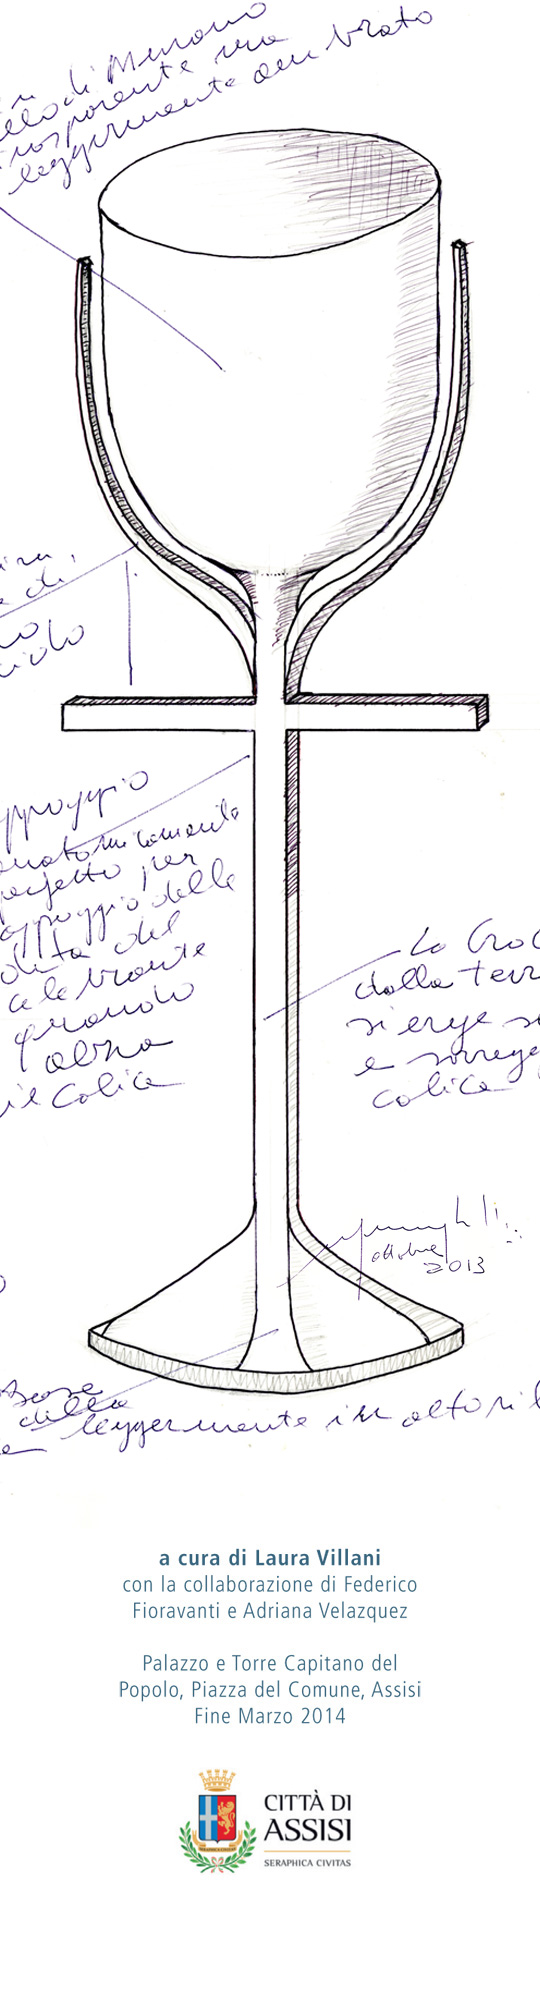 di Murano
trasparente ma
leggermente ombrato
appoggio
anatomicamente
perfetto per
appoggio delle
dita del
celebrante
quando
alza
il calice
La Croc
dalla terr
si erge s
e sorregg
calice
ottobre
2013
Base
della
leggermente in altoril
a cura di Laura Villani
con la collaborazione di Federico
Fioravanti e Adriana Velazquez
Palazzo e Torre Capitano del
Popolo, Piazza del Comune, Assisi
Fine Marzo 2014
CITTÀ DI
ASSISI
SERAPHICA CIVITAS